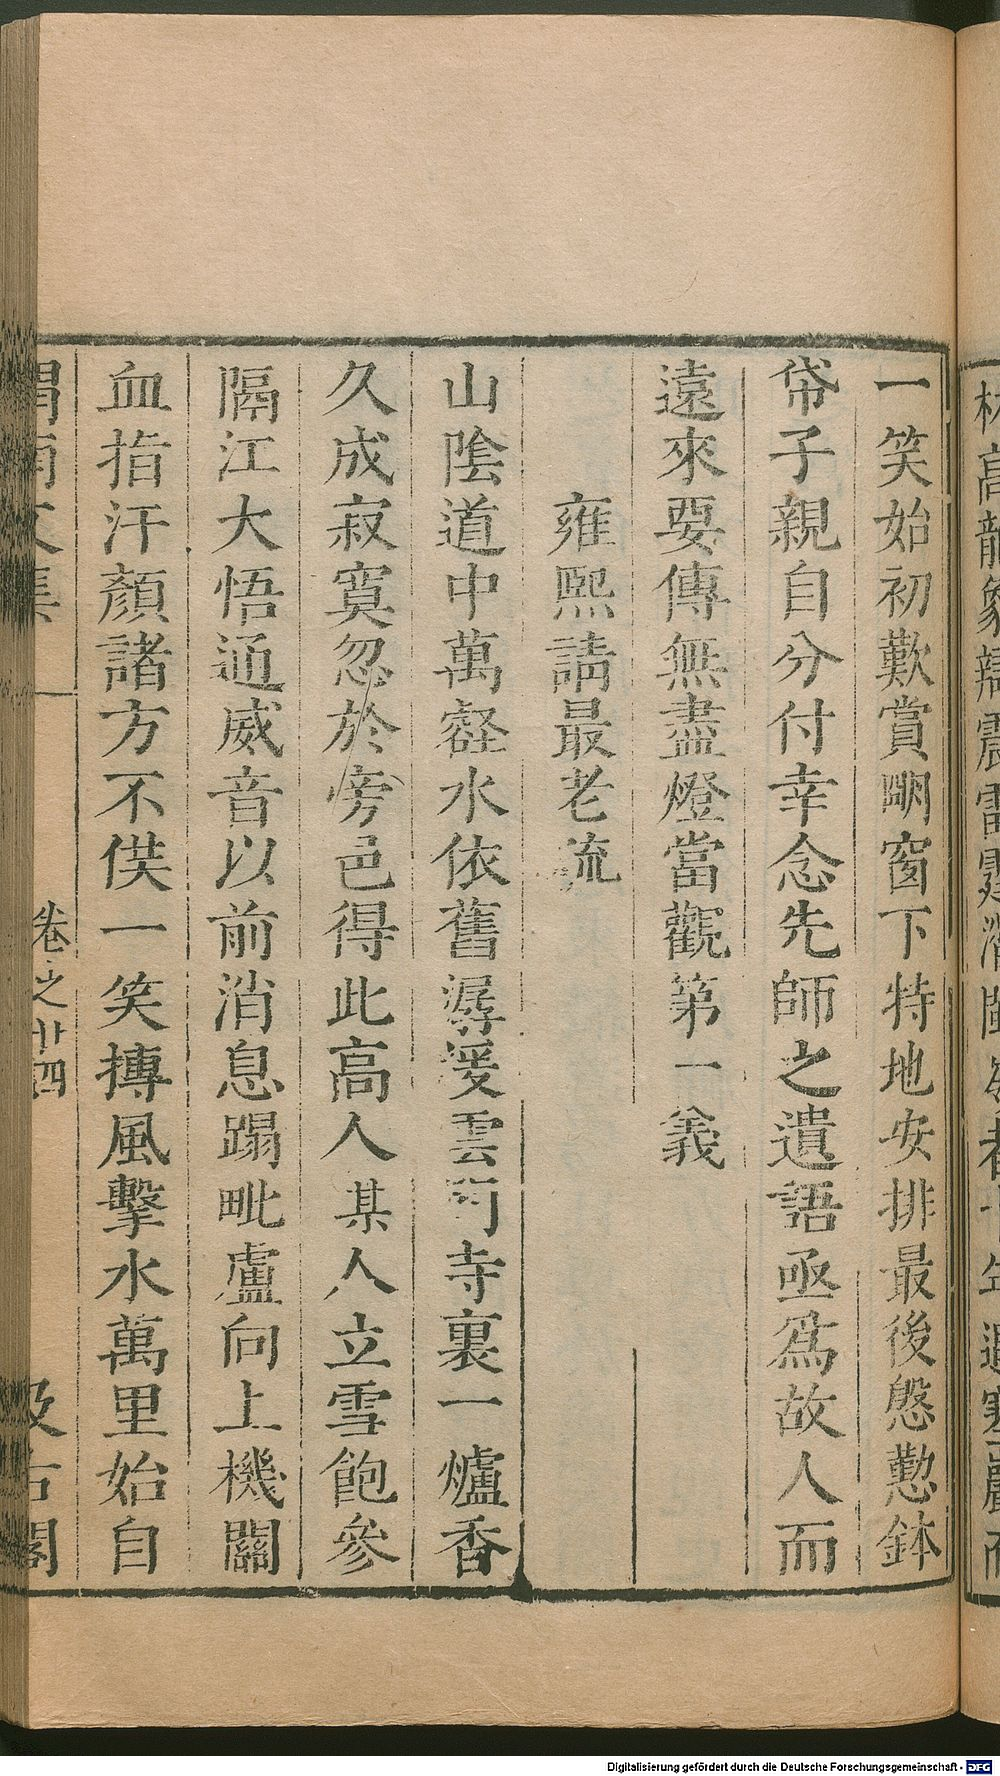 一笑始初歎賞明窗下特地安排最後慇懃鉢
帒子親自分付幸念先師之遺語亟爲故人而
遠來要傳無盡燈當觀第一義
雍熙請最老疏
山陰道中萬壑水依舊潺湲雲門寺裏一爐香
久成寂寞忽於旁邑得此高人某人立雪飽參
隔江大悟通威音以前消息蹋毗盧向上機關
血指汗顏諸方不供一笑摶風擊水萬里始自
渭南文集
卷之廿四
汲古閣
Digitalisierung gefördert durch die Deutsche Forschungsgemeinschaft - DFG